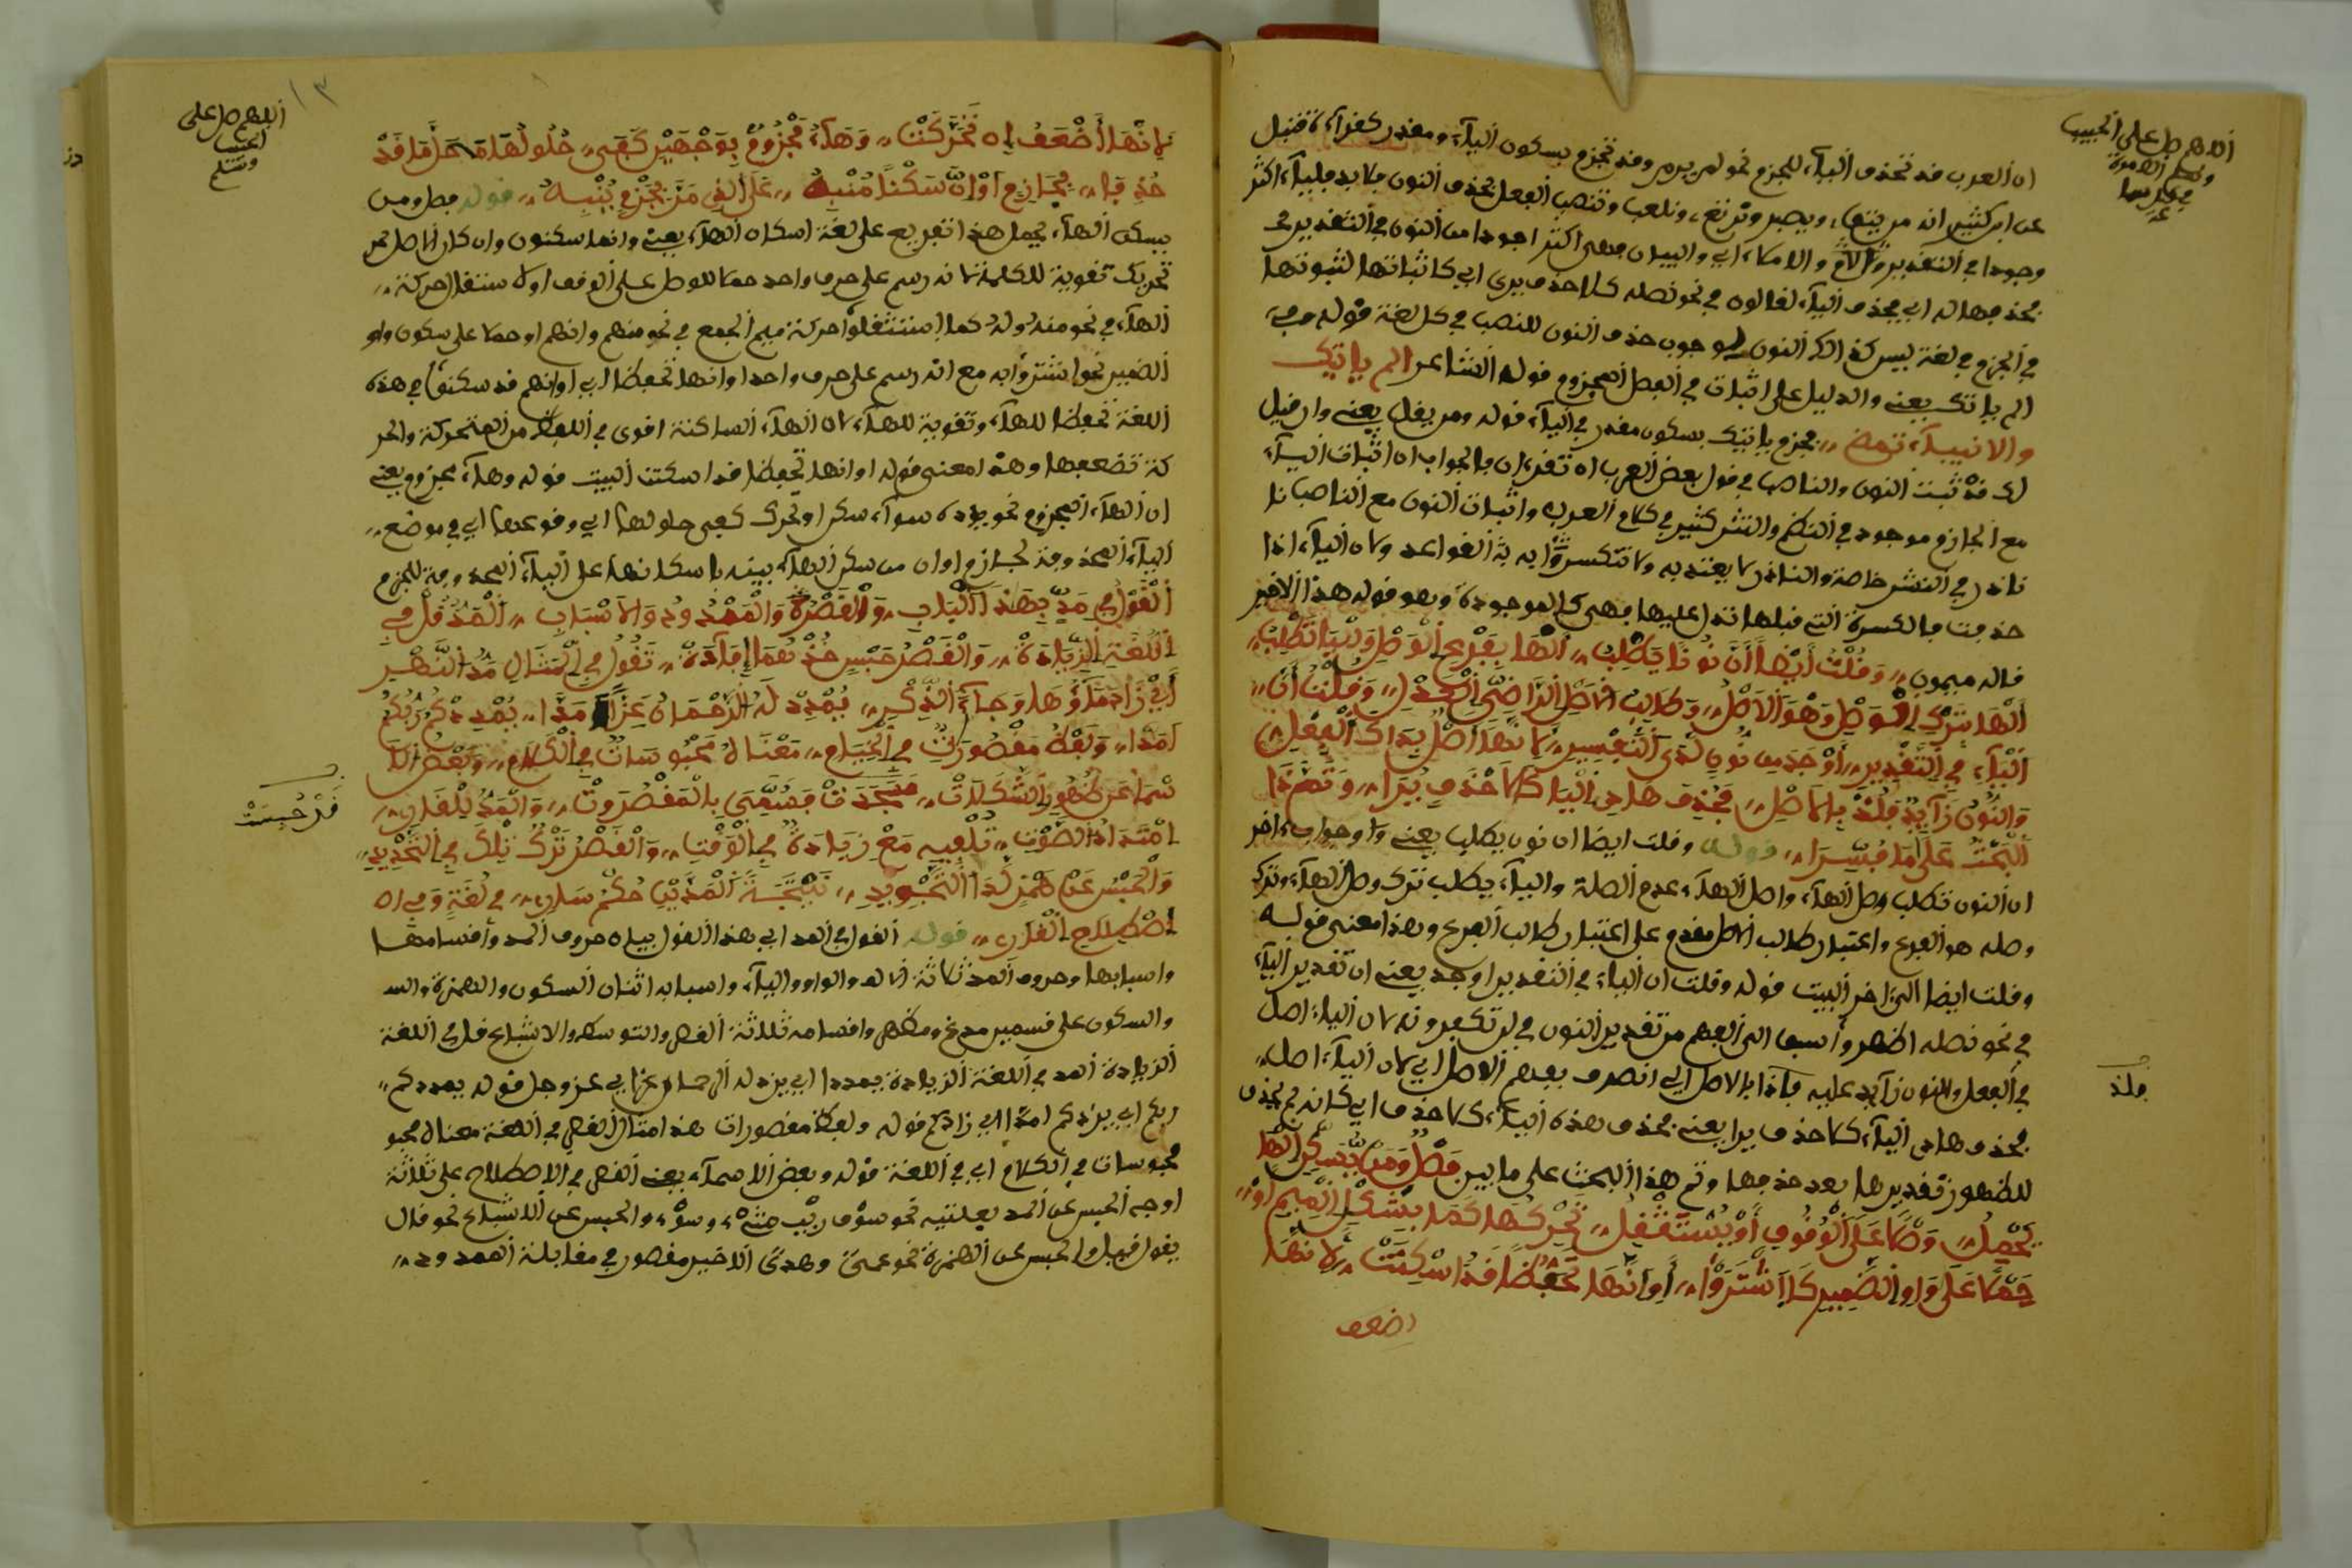 اللهم صل على الحبيب
ان العرب قد تحذف الياء للجزم نحو لم يرم وقد تجزم بسكون الياء ومقدر كقراءة قنبل
عن ابن كثير انه من يتقي ويصبر ونرتع ونلعب وتنصب الفعل بحذف النون بلا بد فالياء اكثر
وجودا في التقدير والامكاء اي والبيان فهي اكثر وجودا من النون في التقدير
بحذفها له اي بحذف الياء لقالون في نحو نصله كلا حذف يرى اي كاثباتها لثبوتها
في الجزم في لغة ليس كذلك النون لوجوب حذف النون للنصب في كل لغة قوله
الم ياتك يعني والدليل على اثبات في الفعل المجزوم قول الشاعر الم ياتيك
والانبياء تنمى مجزم ياتيك بسكون مقدر في الياء قوله ومن يقل يعني وان قيل
لك قد ثبت النون والناصب في قول بعض العرب ان تقرءان فالجواب ان اثبات الياء
مع الجازم موجود في النظم والنثر كثير في كلام العرب واثبات النون مع الناصب نا
نادر في النثر خاصة والنادر لا يعتد به ولا تنكسر به القواعد ولان الياء اذا
حذفت فالكسرة التي قبلها تدل عليها فهي كالموجودة وهو قوله هذا الاخير
قاله ميمون وقلت أيضا أن نونا يطلب الها بفرع الوصل واليا تطلب
الها بترك الوصل وهو الاصل وطالب الاصل الراضي العدل وقلت ان
الياء في التقدير أوجد من نون لدى التفسير لانها اصل بذاك الفعل
والنون زايد فلذ بالاصل فحذف هاذي اليا كلا حذف يرا وتم ذا
البحث على ما فسرا قوله وقلت ايضا ان نون يطلب يعني واوجواب اخر
ان النون تطلب وصل الهاء واصل الهاء عدم الصلة والياء يطلب ترك وصل الهاء وترك
وصله هو الفرع واعتبار طالب الاصل مقدم على اعتبار طالب الفرع وهذا معنى قوله
وقلت ايضا الى اخر البيت قوله وقلت ان الياء في التقدير اوجد يعني ان تقدير الياء
في نحو نصله اظهر واسبق الى الفهم من تقدير النون في لن تكفروه لان الياء اصل
في الفعل والنون زايد عليه فلذ بالاصل اي انصرف بفهم الاصل اي لان الياء اصل
فلذ
بحذف هاذي الياء كلا حذف يرا يعني بحذف هذه الياء كلا حذف اي كانه لم يحذف
للظهور تقديرها بعد حذفها وتم هذا البحث على ما بين فصل ومن يسكن الها
يحمل وصلا على الوقوف أو يستثقل تحريكها كما بشكل الميم او
حملا على واو الضمير كاشتروا أو انها تحفظا قد اسكنت لانها
اضعف
اللهم صل على
الحبيب
وسلم
١٣
لانها أضعف ان تحركت وهاء مجزوم بوجهين كفى حلولها محل ما قد
حذفا بجازم او ان سكنا منبه على الذي من جزم يبنيه قوله فصل ومن
يسكن الهاء يحمل هذا تفريع على لغة اسكان الهاء يعني وانما سكنون وان كان الاصل
تحريك تقوية للكلمة لانه رسم على حرف واحد حملا للوصل على الوقف او لاستثقال حركة
الهاء في نحو منه وله كما استثقلوا حركة ميم الجمع في نحو منهم وانهم او حملا على سكون واو
الضمير نحو اشتروا به مع انه رسم على حرف واحد وانها تحفظا اي او انهم قد سكنوا في هذه
اللغة تحفظا للهاء وتقوية للهاء لان الهاء الساكنة اقوى في اللفظ من المتحركة والحر
كة تضعفها وهذا معنى قوله او انها تحفظا قد اسكنت البيت قوله وهاء مجزوم يعني
ان الهاء المجزوم نحو يؤده سواء سكن او تحرك كفى حلولها اي وقوعها اي في موضع
الياء المحذوفة لجازم او ان من سكن الهاء بينه باسكانها على الياء المحذوفة للجزم
القول في مد بهذا الباب والقصر والممدود والاسباب المد قل في
اللغة الزيادة والقصر حبس خذهما إفادة تقول في المثال مد النهر
أي زاد ماؤها وجاء في الذكر يمدد له الرحمان عزا مدا يمددكم ربكم
امدا ولفظ مقصورات في الخيام معناه محبوسات في الكلام وبعض الا
سما عن ظهور الشكلات قد حبست فسميت بالمقصورات والمد للقارئ
قد حبست
امتداد الصوت تلفيه مع زيادة في الوقت والقصر ترك تلك في التحديد
والحبس عن همز لدا التجويد نتيجة المدين حكم سار في لغة وفي ا
اصطلاح القارئ قوله القول في المد اي هذا القول بيان حروف المد واقسامها
واسبابها وحروف المد ثلاثة الالف والواو والياء واسبابه اثنان السكون والهمزة والسـ
والسكون على قسمين مدغم ومظهر واقسامه ثلاثة القصر والتوسط والاشباع قل في اللغة
الزيادة المد في اللغة الزيادة يمددا اي يزد له الرحمان عزا اي عز وجل قوله يمددكم
ربكم اي يزدكم امدا اي زادكم قوله ولفظ مقصورات هذا مثال القصر في اللغة معناه محبو
محبوسات في الكلام اي في اللغة قوله وبعض الاسماء يعني القصر في الاصطلاح على ثلاثة
اوجه الحبس عن المد بعلتيه نحو سوف ريب منه وسوء والحبس عن الاشباع نحو قال
يقول فيه والحبس عن الهمزة نحو عمى وهدى الاخير مقصور في مقابلة الممدود